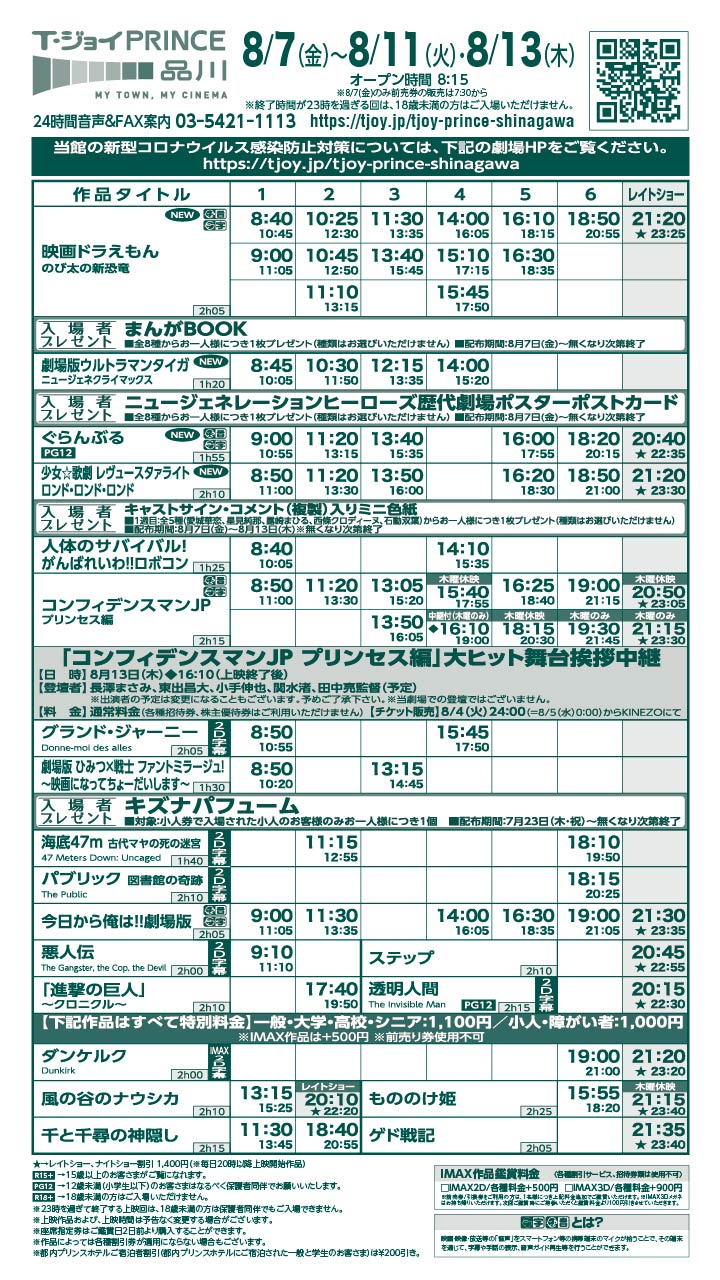 T・ジョイPRINCE
品川
MY TOWN, MY CINEMA
8/7(金)~8/11(火)・8/13(木)
オープン時間 8:15
※8/7(金)のみ前売券の販売は7:30から
※終了時間が23時を過ぎる回は、18歳未満の方はご入場いただけません。
24時間音声&FAX案内 03-5421-1113 https://tjoy.jp/tjoy-prince-shinagawa
当館の新型コロナウイルス感染防止対策については、下記の劇場HPをご覧ください。
https://tjoy.jp/tjoy-prince-shinagawa
作品タイトル 1 2 3 4 5 6 レイトショー
映画ドラえもん NEW
のび太の新恐竜 2h05
8:40 10:25 11:30 14:00 16:10 18:50 21:20
10:45 12:30 13:35 16:05 18:15 20:55 ★23:25
9:00 10:45 13:40 15:10 16:30
11:05 12:50 15:45 17:15 18:35
11:10 15:45
13:15 17:50
入場者プレゼント まんがBOOK
■全8種からお一人様につき1枚プレゼント(種類はお選びいただけません) ■配布期間:8月7日(金)~無くなり次第終了
劇場版ウルトラマンタイガ NEW 8:45 10:30 12:15 14:00
ニュージェネクライマックス 1h20 10:05 11:50 13:35 15:20
入場者プレゼント ニュージェネレーションヒーローズ歴代劇場ポスターポストカード
■全8種からお一人様につき1枚プレゼント(種類はお選びいただけません) ■配布期間:8月7日(金)~無くなり次第終了
ぐらんぶる NEW 9:00 11:20 13:40 16:00 18:20 20:40
PG12 1h55 10:55 13:15 15:35 17:55 20:15 ★22:35
少女☆歌劇 レヴュースタァライト NEW 8:50 11:20 13:50 16:20 18:50 21:20
ロンド・ロンド・ロンド 2h10 11:00 13:30 16:00 18:30 21:00 ★23:30
入場者プレゼント キャストサイン・コメント(複製)入りミニ色紙
■1週目:全5種(愛城華恋、星見純那、露崎まひる、西條クロディーヌ、石動双葉)からお一人様につき1枚プレゼント(種類はお選びいただけません)
■配布期間:8月7日(金)~8月13日(木)※無くなり次第終了
人体のサバイバル! 8:40 14:10
がんばれいわ!!ロボコン 1h25 10:05 15:35
コンフィデンスマンJP
プリンセス編 2h15
木曜休映 木曜休映
8:50 11:20 13:05 15:40 16:25 19:00 20:50
11:00 13:30 15:20 17:55 18:40 21:15 ★23:05
中継付(木曜のみ) 木曜休映 木曜のみ 木曜のみ
13:50 ◆16:10 18:15 19:30 21:15
16:05 19:00 20:30 21:45 ★23:30
「コンフィデンスマンJP プリンセス編」大ヒット舞台挨拶中継
【日 時】8月13日(木)◆16:10(上映終了後)
【登壇者】長澤まさみ、東出昌大、小手伸也、関水渚、田中亮監督(予定)
※出演者の予定は変更になることもございます。予めご了承下さい。※当劇場での登壇ではございません。
【料 金】通常料金(各種招待券、株主優待券はご利用いただけません)【チケット販売】8/4(火)24:00(=8/5(水)0:00)からKINEZOにて
グランド・ジャーニー 2D字幕 8:50 15:45
Donne-moi des alles 2h05 10:55 17:50
劇場版 ひみつ×戦士 ファントミラージュ! 8:50 13:15
~映画になってちょーだいします~ 1h30 10:20 14:45
入場者プレゼント キズナパフューム
■対象:小人券で入場された小人のお客様のみお一人様につき1個 ■配布期間:7月23日(木・祝)~無くなり次第終了
海底47m 古代マヤの死の迷宮 2D字幕 11:15 18:10
47 Meters Down: Uncaged 1h40 12:55 19:50
パブリック 図書館の奇跡 2D字幕 18:15
The Public 2h10 20:25
今日から俺は!!劇場版 9:00 11:30 14:00 16:30 19:00 21:30
2h05 11:05 13:35 16:05 18:35 21:05 ★23:35
悪人伝 2D字幕 9:10 ステップ 20:45
The Gangster, the Cop, the Devil 2h00 11:10 2h10 ★22:55
「進撃の巨人」 17:40 透明人間 2D字幕 20:15
~クロニクル~ 2h10 19:50 The Invisible Man PG12 2h15 ★22:30
【下記作品はすべて特別料金】一般・大学・高校・シニア:1,100円/小人・障がい者:1,000円
※IMAX作品は+500円 ※前売り券使用不可
ダンケルク IMAX 2D字幕 19:00 21:20
Dunkirk 2h00 21:00 ★23:20
レイトショー 木曜休映
風の谷のナウシカ 13:15 20:10 もののけ姫 15:55 21:15
2h10 15:25 ★22:20 2h25 18:20 ★23:40
千と千尋の神隠し 11:30 18:40 ゲド戦記 21:35
2h15 13:45 20:55 2h05 ★23:40
★→レイトショー、ナイトショー割引 1,400円(※毎日20時以降上映開始作品)
R15+→15歳以上のお客さまがご覧になれます。
PG12→12歳未満(小学生以下)のお客さまはなるべく保護者同伴でお願いいたします。
R18+→18歳未満の方はご入場いただけません。
※23時を過ぎて終了する上映回は、18歳未満の方は保護者同伴でもご入場できません。
※上映作品および、上映時間は予告なく変更する場合がございます。
※座席指定券はご鑑賞日2日前より購入することができます。
※作品によっては各種割引券が適用にならない場合もございます。
※都内プリンスホテルご宿泊者割引(都内プリンスホテルにご宿泊された一般と学生のお客さま)は¥200引き。
IMAX作品鑑賞料金 (各種割引サービス、招待券類は使用不可)
□IMAX2D/各種料金+500円 □IMAX3D/各種料金+900円
とは?